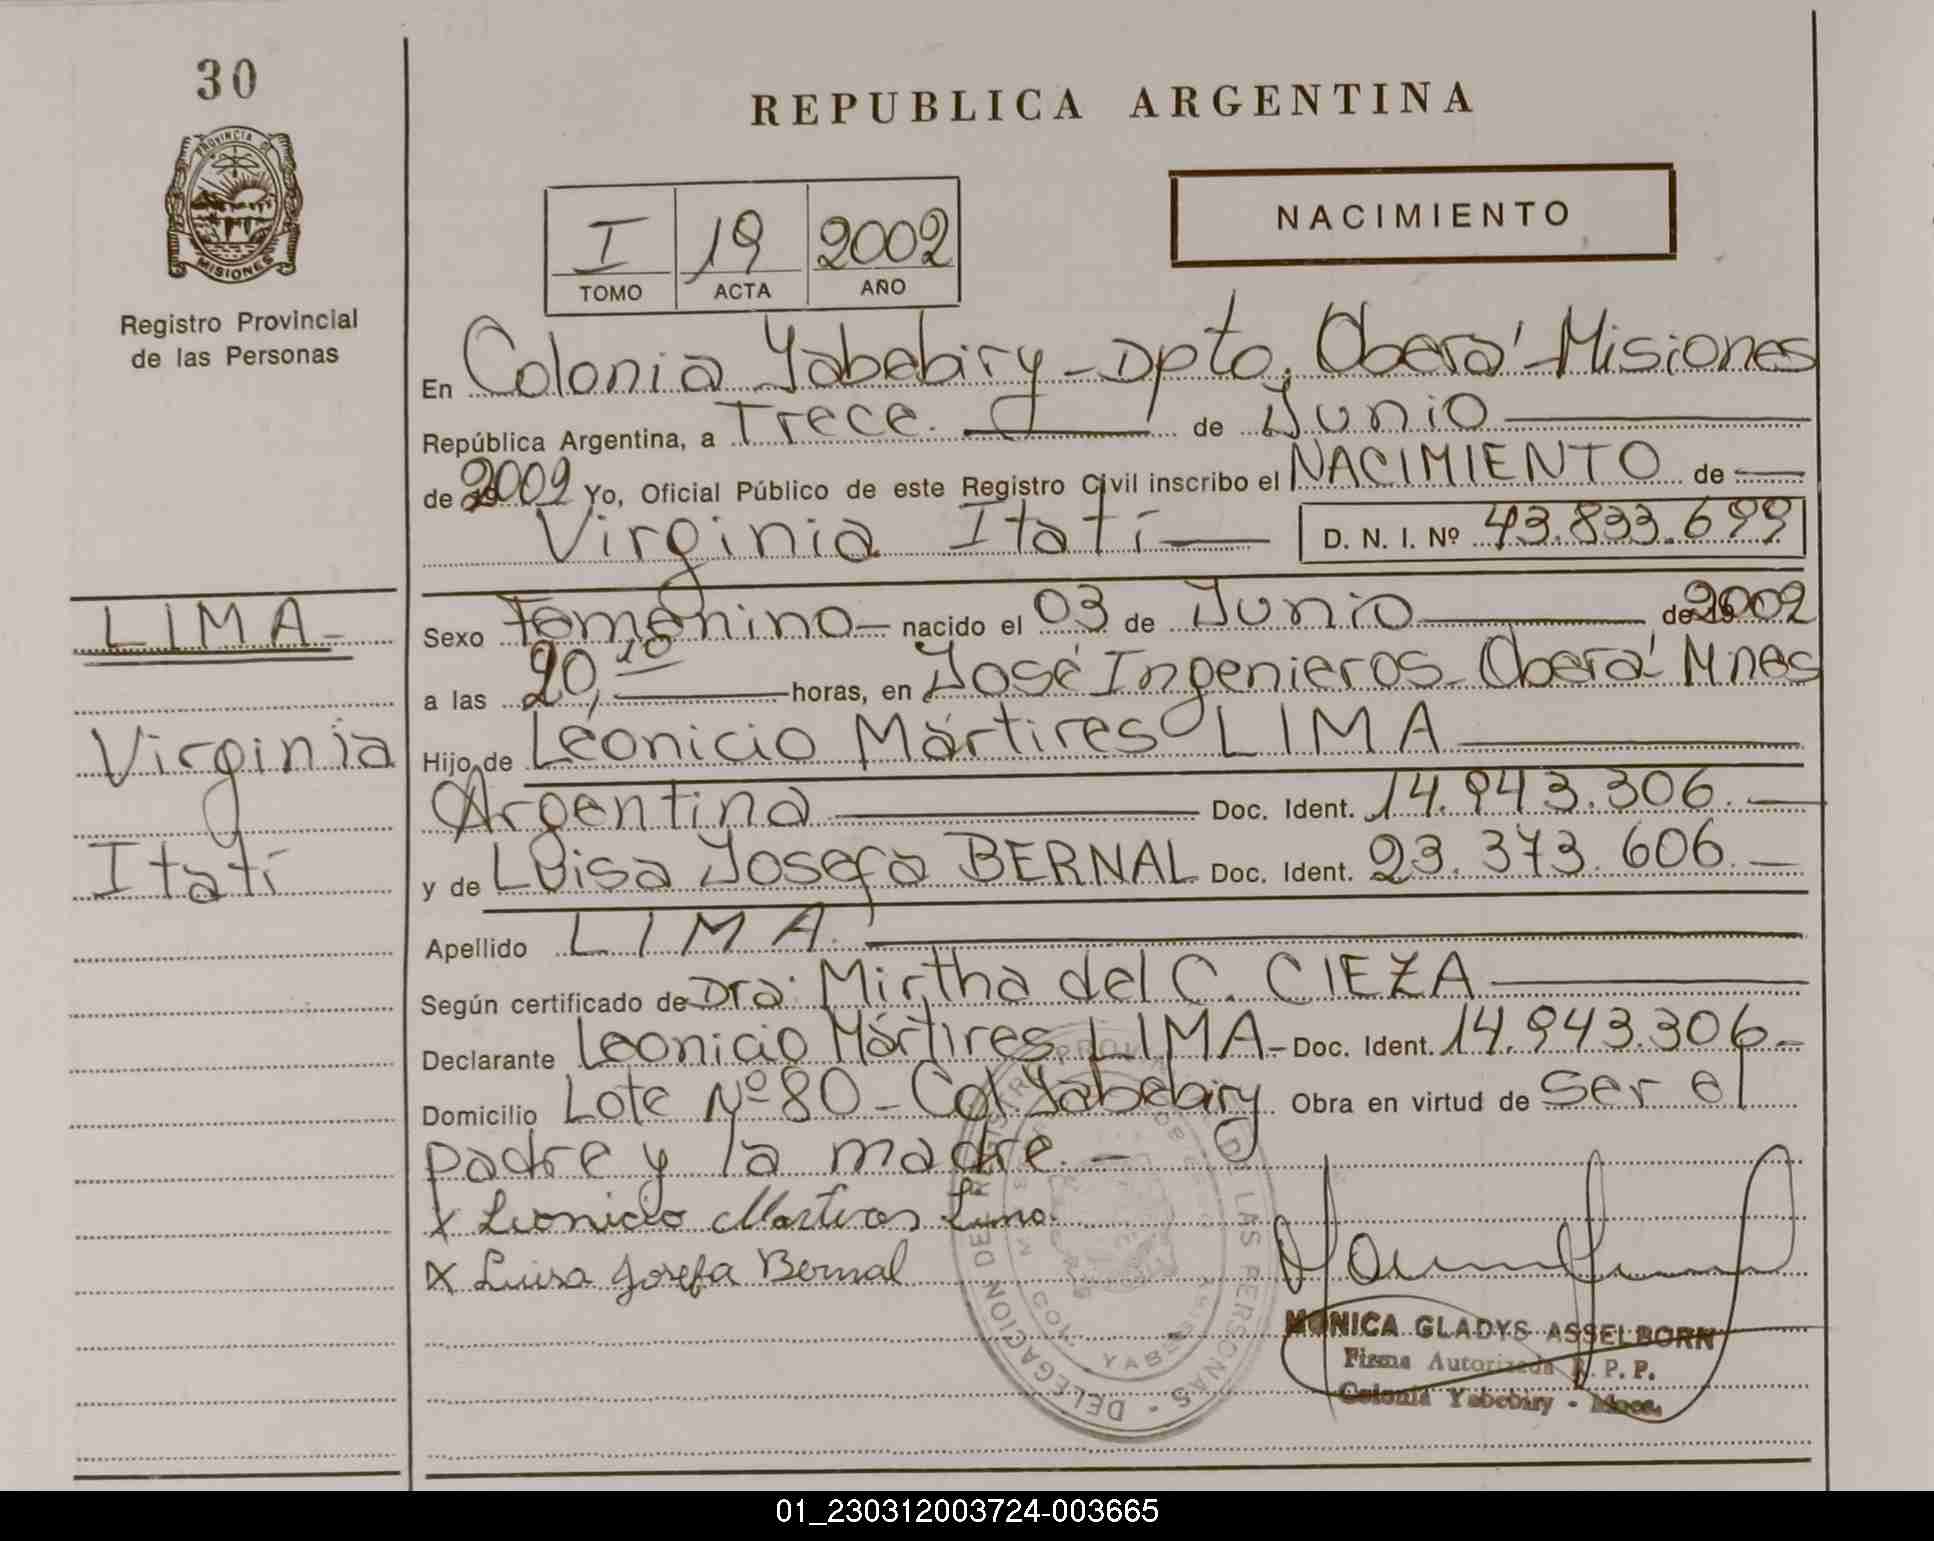 30
PROVINCIA DE
MISIONES
Registro Provincial
de las Personas
REPUBLICA ARGENTINA
I 19 2002
TOMO ACTA AÑO
NACIMIENTO
En Colonia Yabebiry - Dpto. Oberá - Misiones
República Argentina, a Trece. de Junio
de 2002 Yo, Oficial Público de este Registro Civil inscribo el NACIMIENTO de
Virginia Itatí D. N. I. Nº 43.833.699
LIMA
Virginia
Itatí
Sexo Femenino - nacido el 03 de Junio de 2002
a las 20,10 horas, en José Ingenieros - Oberá Mnes
Hijo de Leonicio Mártires LIMA
Argentina Doc. Ident. 14.943.306.-
y de Luisa Josefa BERNAL Doc. Ident. 23.373.606.-
Apellido LIMA.
Según certificado de Dra. Mirtha del C. CIEZA
Declarante Leonicio Mártires LIMA - Doc. Ident. 14.943.306.-
Domicilio Lote Nº 80 - Col. Yabebiry Obra en virtud de ser el
padre y la madre. -
X Leonicio Martires Lima.
X Luisa Josefa Bernal
DELEGACION DEL REGISTRO PROVINCIAL DE LAS PERSONAS
COL. YABEBIRY
MONICA GLADYS ASSELBORN
Firma Autorizada R. P. P.
Colonia Yabebiry - Mnes.
01_230312003724-003665